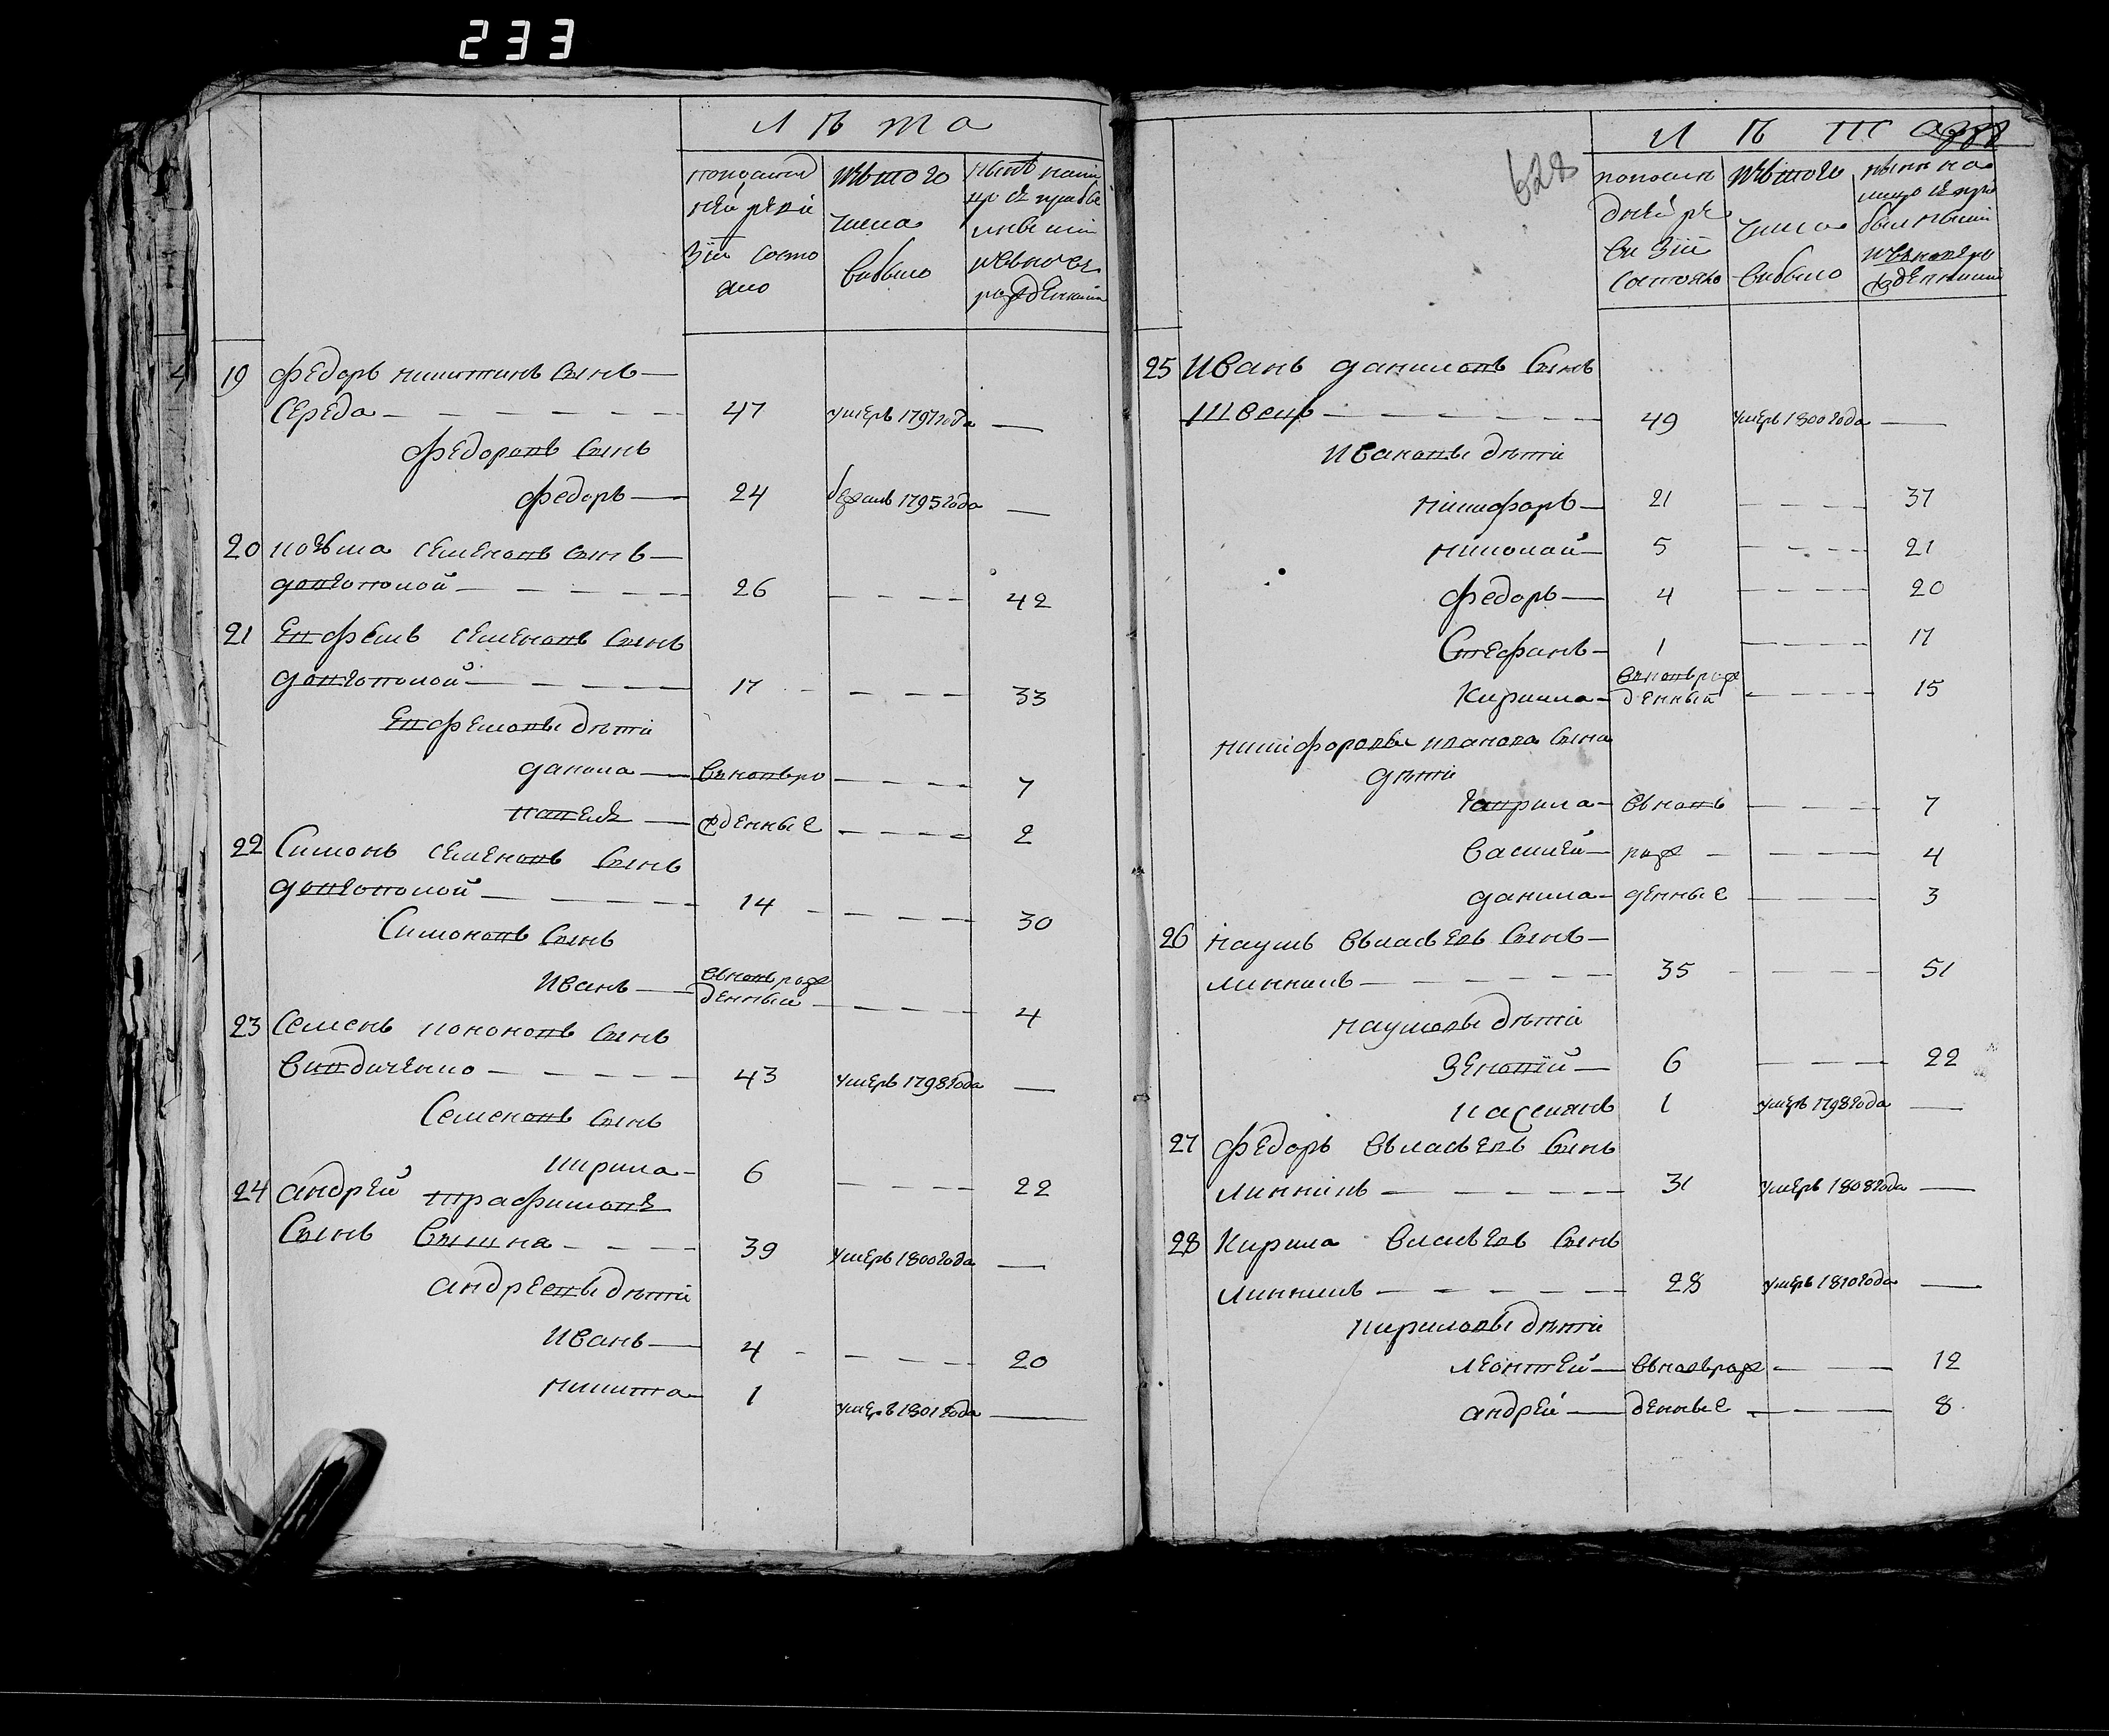 233
Лѣта
попослед ней реви зіи состо яло
исътого числа выбыло
нынѣ нали цо съ прибы лыми и съновъ рожденными
19 Федоръ никитинъ сынъ —
Середа — 47 умеръ 1797года —
Федоровъ сынъ
Федоръ — 24 бежалъ 1795года —
20 козма семеновъ сынъ —
довгополой — 26 — 42
21 Евфемъ семеновъ сынъ
довгополой — 17 — 33
Евфемовы дѣти
данила — вновь ро — 7
павелъ — жденные — 2
22 Симонъ семеновъ сынъ
довгополой — 14 — 30
Симоновъ сынъ
Иванъ — вновь рож денный — 4
23 Семенъ кононовъ сынъ
— 43 умеръ 1798года —
Семеновъ сынъ
кирила — 6 — 22
24 андрей трафимовъ
Сынъ — 39 умеръ 1800года —
андреевы дѣти
Иванъ — 4 — 20
никита — 1 умеръ 1801года —
628
Лѣта
попослѣ дней ре ви зіи состояло
исътого числа выбыло
нынѣ на лицо съ при былыми и съновъ ро жденными
25 Иванъ даниловъ сынъ
Швецъ — 49 умеръ 1800года —
Ивановы дѣти
никифоръ — 21 — 37
николай — 5 — 21
Федоръ — 4 — 20
Стефанъ — 1 — 17
Кирила — вновь рож денный — 15
никифоровы иванова сына
дѣти
гаврила — вновь — 7
василей — рож — 4
данила — денные — 3
26 наумъ Власъевъ сынъ —
линникъ — 35 — 51
наумовы дѣти
Зеновій — 6 — 22
касиянъ 1 умеръ 1798года —
27 Федоръ Власъевъ сынъ
линникъ — 31 умеръ 1808года —
28 Кирила Власъевъ сынъ
линникъ — 28 умеръ 1810года —
кириловы дѣти
леонтей — вновь рож — 12
андрей — денные — 8